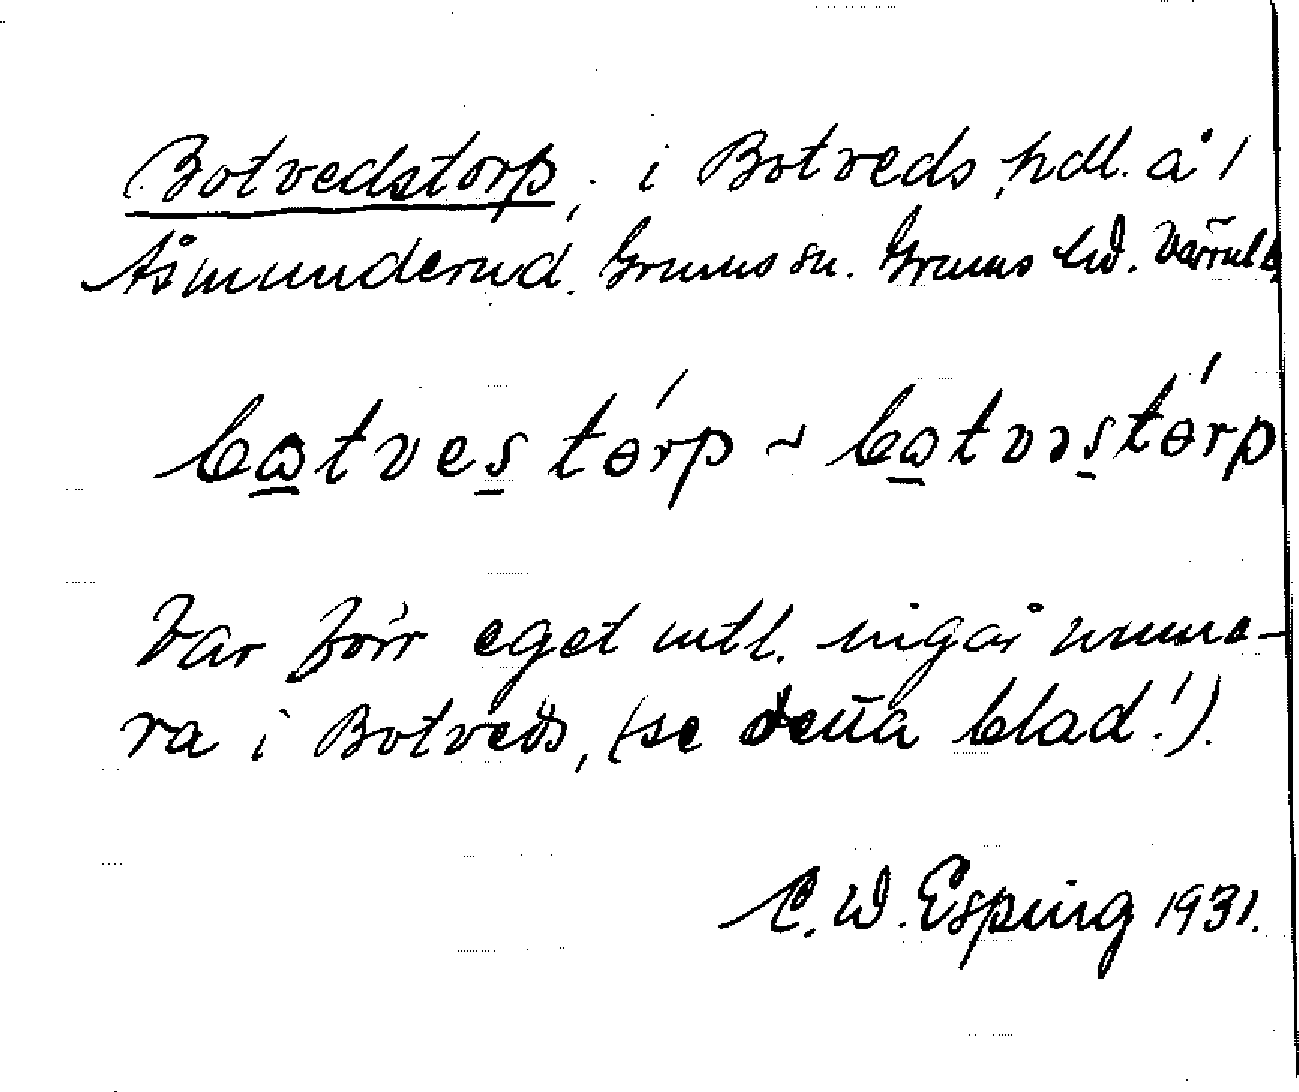 Botvedstorp, i Botveds hdl. å /
Åsmunderud. Grums sn. Grums hd. Värml.
batvestórp ~ batvəstórp
Var förr eget mtl. ingår numa-
ra i Botveds, (se detta blad!).
C. W. Esping 1931.